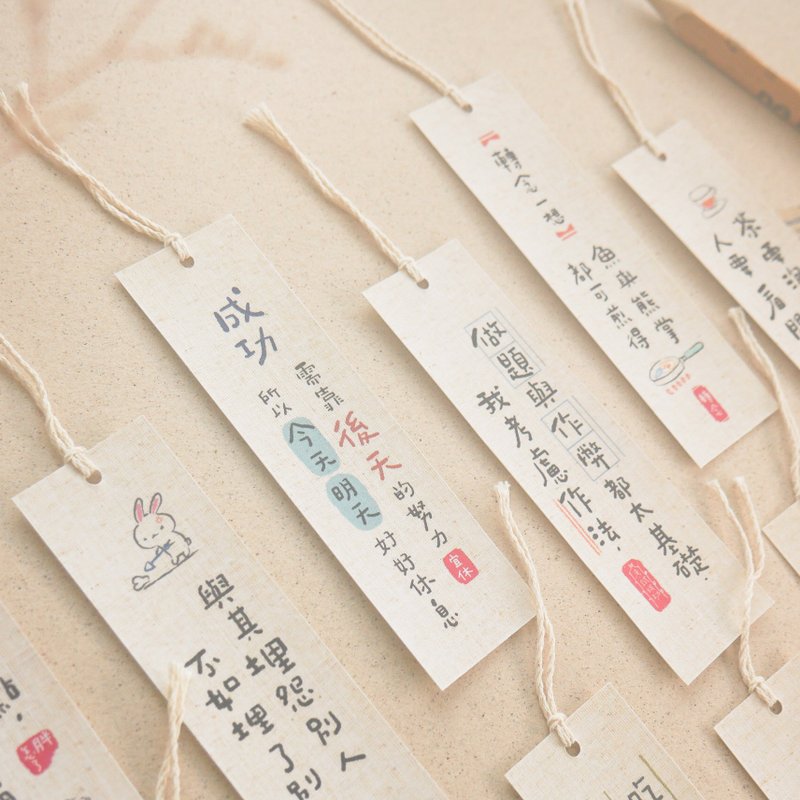 成功
需靠後天的努力
所以今天明天好好休息
宜休
做題與作弊都太基礎，
我考慮作法，
【轉念一想】
魚與熊掌
都可煎得
轉念
茶
人要看
與其埋怨別人
不如埋了別
胖了
吃